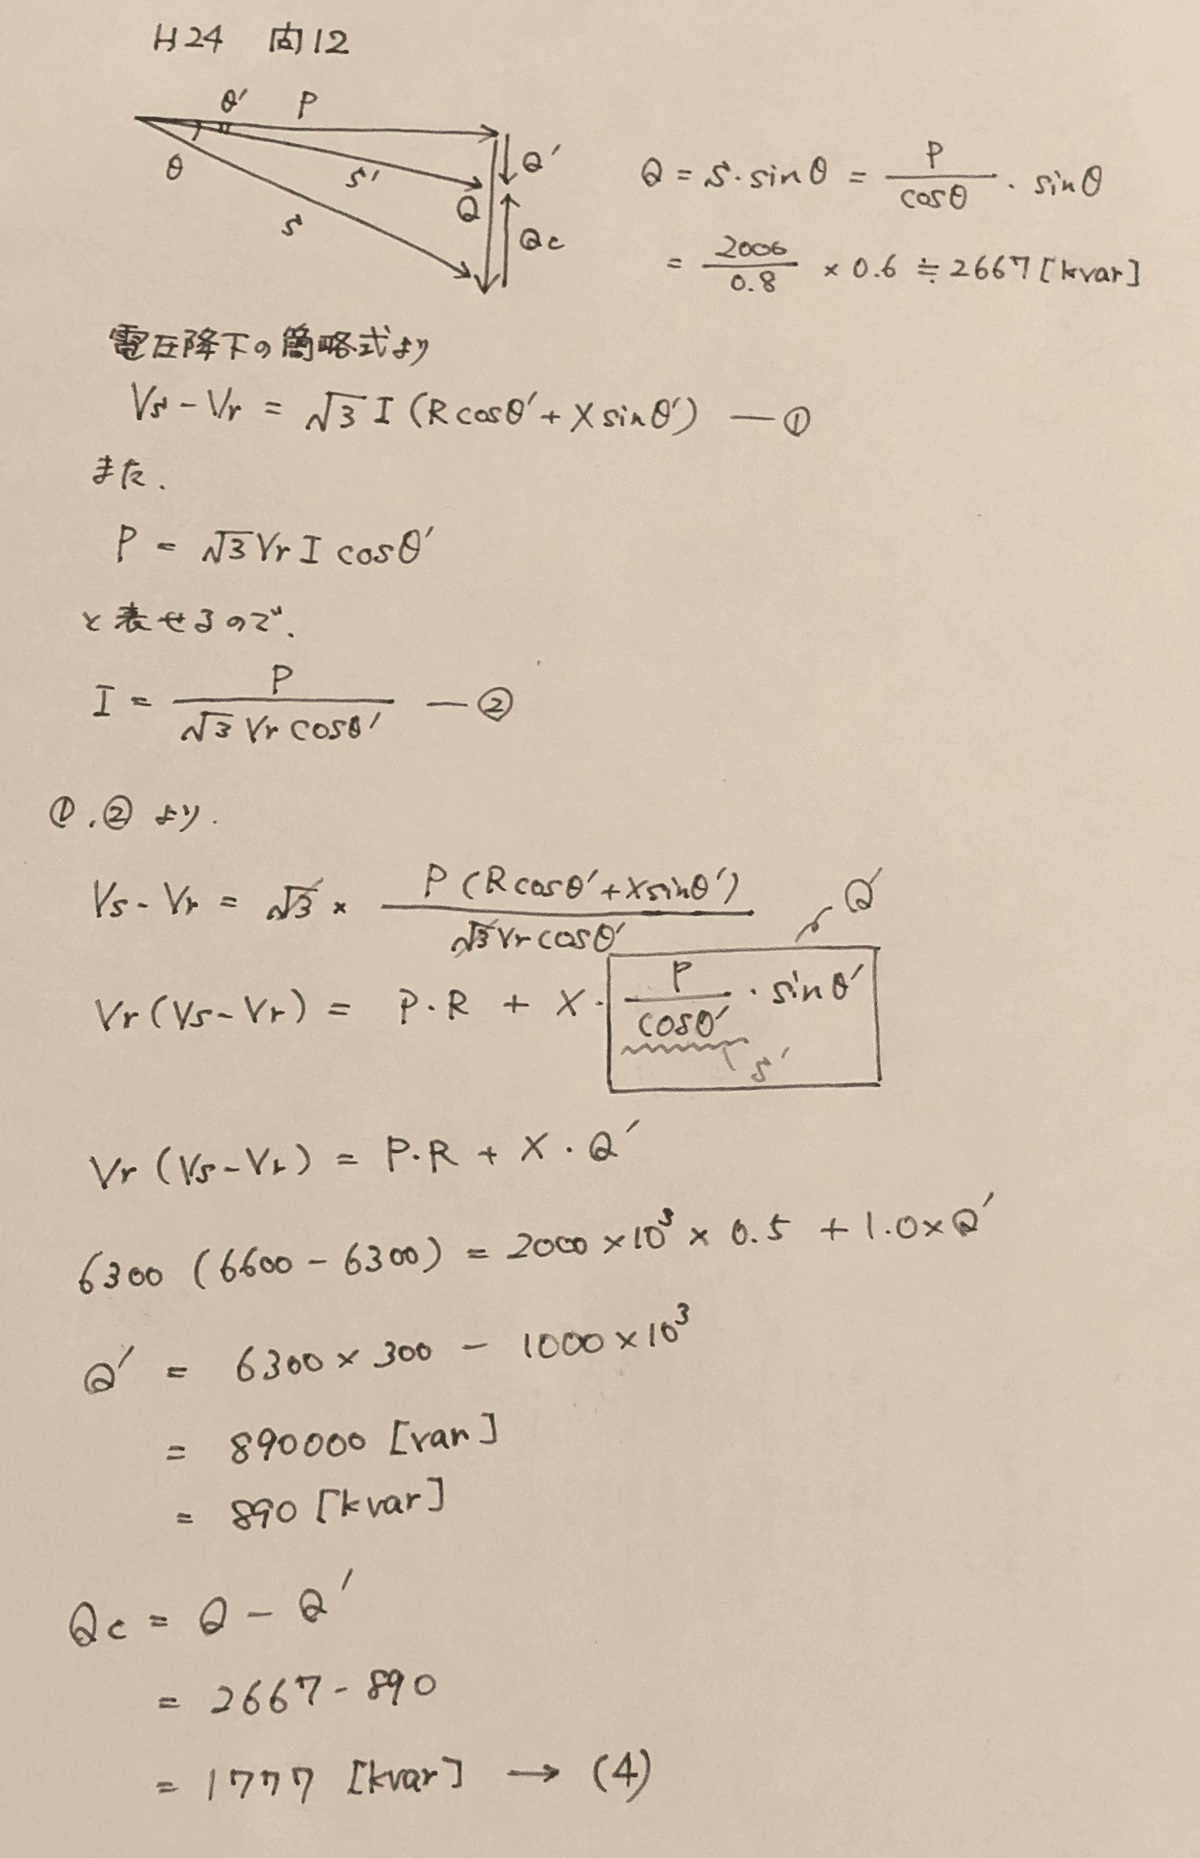 H24 問12
θ' P
θ S' Q'
S Q Qc
Q = S・sinθ = P/cosθ ・ sinθ
= 2000/0.8 × 0.6 ≒ 2667 [kvar]
電圧降下の簡略式より
Vs - Vr = √3 I (R cosθ' + X sinθ') ― ①
また、
P = √3 Vr I cosθ'
と表せるので、
I = P/√3 Vr cosθ' ― ②
①、②より、
Vs - Vr = √3 × P (R cosθ' + X sinθ')/√3 Vr cosθ'
Q'
Vr (Vs - Vr) = P・R + X・P/cosθ' ・ sinθ'
S'
Vr (Vs - Vr) = P・R + X・Q'
6300 (6600 - 6300) = 2000 × 10³ × 0.5 + 1.0 × Q'
Q' = 6300 × 300 - 1000 × 10³
= 890000 [var]
= 890 [kvar]
Qc = Q - Q'
= 2667 - 890
= 1777 [kvar] → (4)